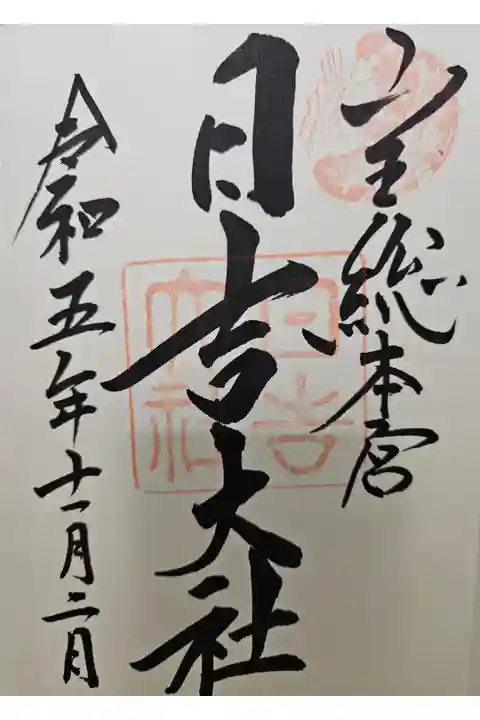 山王総本宮
日吉大社
令和五年十一月二日
日吉
大社